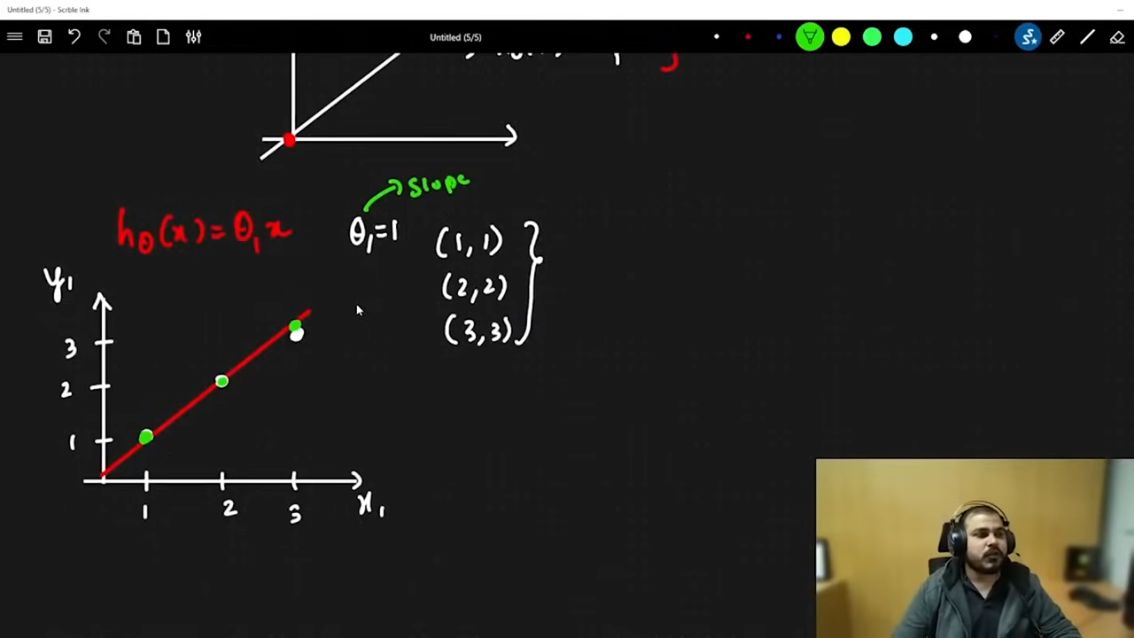 Untitled (5/5) - Scrble Ink
Untitled (5/5)
slope
hθ(x)=θ₁x
θ₁=1
(1,1)
(2,2)
(3,3)
y₁
3
2
1
1 2 3 x₁